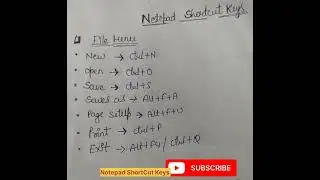 Notepad Shortcut Keys
File Menu
New → Ctrl+N
Open → Ctrl+O
Save → Ctrl+S
Saves as → Alt+F+A
Page setup → Alt+F+U
Print → Ctrl+P
Exit → Alt+F4 / Ctrl+Q
Notepad ShortCut Keys
SUBSCRIBE